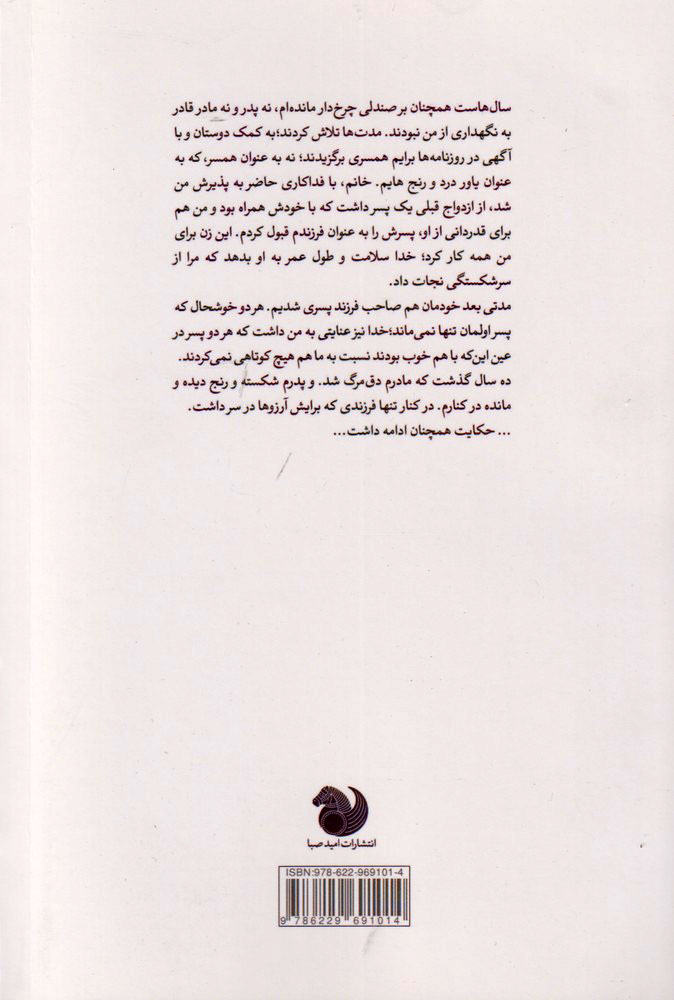 سال‌هاست همچنان بر صندلی چرخ‌دار مانده‌ام، نه پدر و نه مادر قادر
به نگهداری از من نبودند. مدت‌ها تلاش کردند؛به کمک دوستان و با
آگهی در روزنامه‌ها برایم همسری برگزیدند؛ نه به عنوان همسر، که به
عنوان یاور درد و رنج هایم. خانم، با فداکاری حاضر به پذیرش من
شد، از ازدواج قبلی یک پسر داشت که با خودش همراه بود و من هم
برای قدردانی از او، پسرش را به عنوان فرزندم قبول کردم. این زن برای
من همه کار کرد؛ خدا سلامت و طول عمر به او بدهد که مرا از
سرشکستگی نجات داد.
مدتی بعد خودمان هم صاحب فرزند پسری شدیم. هر دو خوشحال که
پسر اولمان تنها نمی‌ماند؛خدا نیز عنایتی به من داشت که هر دو پسر در
عین این‌که با هم خوب بودند نسبت به ما هم هیچ کوتاهی نمی‌کردند.
ده سال گذشت که مادرم دق‌مرگ شد. و پدرم شکسته و رنج دیده و
مانده در کنارم. در کنار تنها فرزندی که برایش آرزوها در سر داشت.
... حکایت همچنان ادامه داشت...
انتشارات امید صبا
ISBN:978-622-969101-4
9 786229 691014